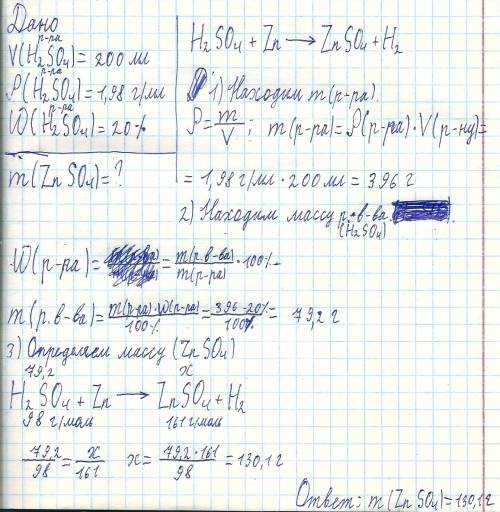 Дано
V(H₂SO₄) р-ра = 200 мл
ρ(H₂SO₄) р-ра = 1,98 г/мл
ω(H₂SO₄) р-ра = 20%
m(ZnSO₄)=?
H₂SO₄ + Zn → ZnSO₄ + H₂
1) Находим m(р-ра).
ρ = m/V ; m(р-ра) = ρ(р-ра) · V(р-ну) =
= 1,98 г/мл · 200 мл = 396 г
2) Находим массу р. в-ва
(H₂SO₄)
ω(р-ра) = m(р.в-ва)/m(р-ра) · 100%
m(р.в-ва) = m(р-ра)·ω(р-ра)/100% = 396·20%/100% = 79,2 г
3) Определяем массу (ZnSO₄)
79,2 x
H₂SO₄ + Zn → ZnSO₄ + H₂
98 г/моль 161 г/моль
79,2/98 = x/161 x = 79,2·161/98 = 130,1 г
Ответ: m(ZnSO₄) = 130,1 г